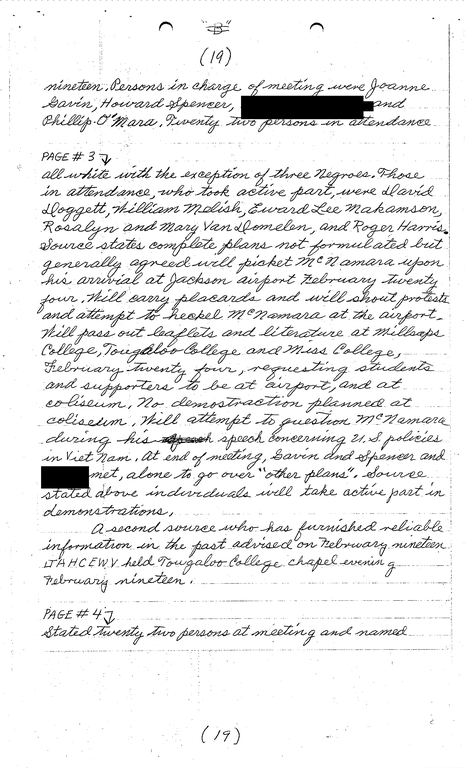 "B"
(19)
nineteen. Persons in charge of meeting were Joanne
Gavin, Howard Spencer, and
Phillip O'Mara. Twenty two persons in attendance
PAGE # 3
all white with the exception of three Negroes. Those
in attendance, who took active part, were David
Doggett, William Melish, Eward Lee Makamson,
Rosalyn and Mary Van Domelen, and Roger Harris.
Source states complete plans not formulated but
generally agreed will picket McNamara upon
his arrivial at Jackson airport February twenty
four. Will carry placards and will shout protests
and attempt to heckel McNamara at the airport.
Will pass out leaflets and literature at Millsaps
College, Tougaloo College and Miss College,
February twenty four, requesting students
and supporters to be at airport, and at
coliseum. No demostraction planned at
coliseum. Will attempt to question McNamara
during his speech speech concerning U.S. policies
in Viet Nam. At end of meeting, Gavin and Spencer and
met, alone to go over "other plans". Source
stated above individuals will take active part in
demonstrations.
A second source who has furnished reliable
information in the past advised on February nineteen
held Tougaloo College chapel evening
February nineteen.
PAGE # 4
Stated twenty two persons at meeting and named
(19)